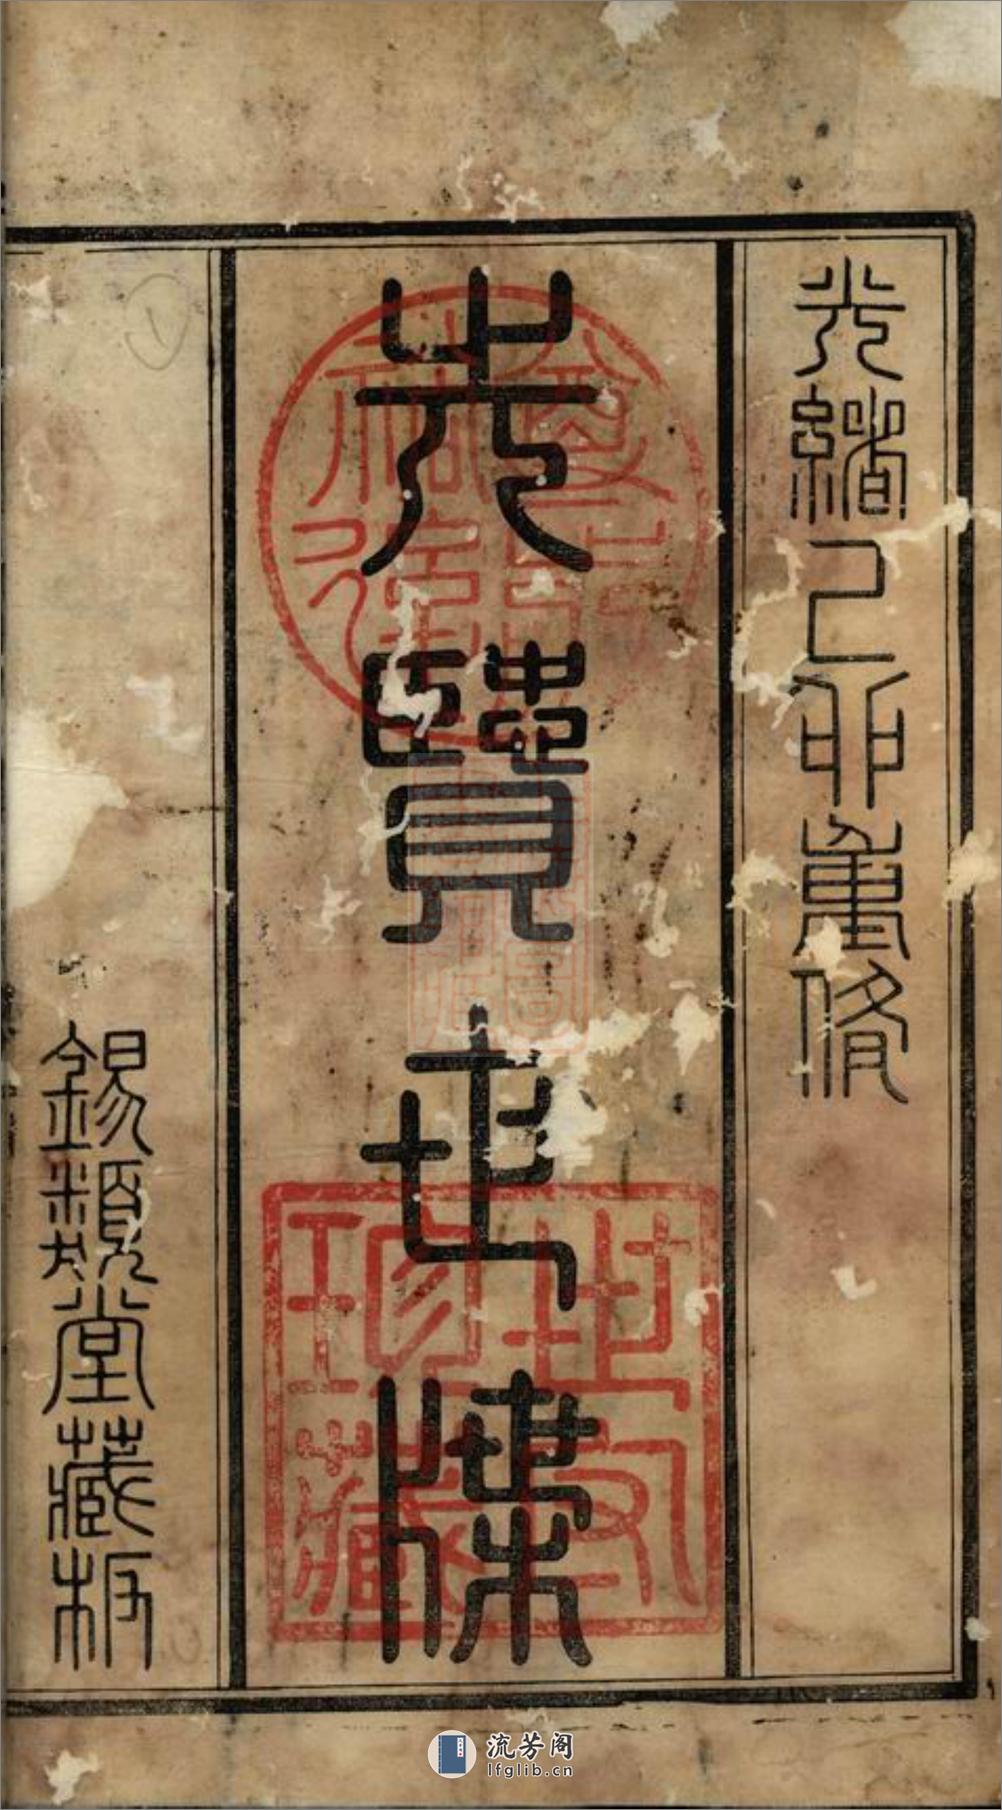 光緒己卯重修
先賢世牒
錫類堂藏板
流芳阁
lfglib.cn